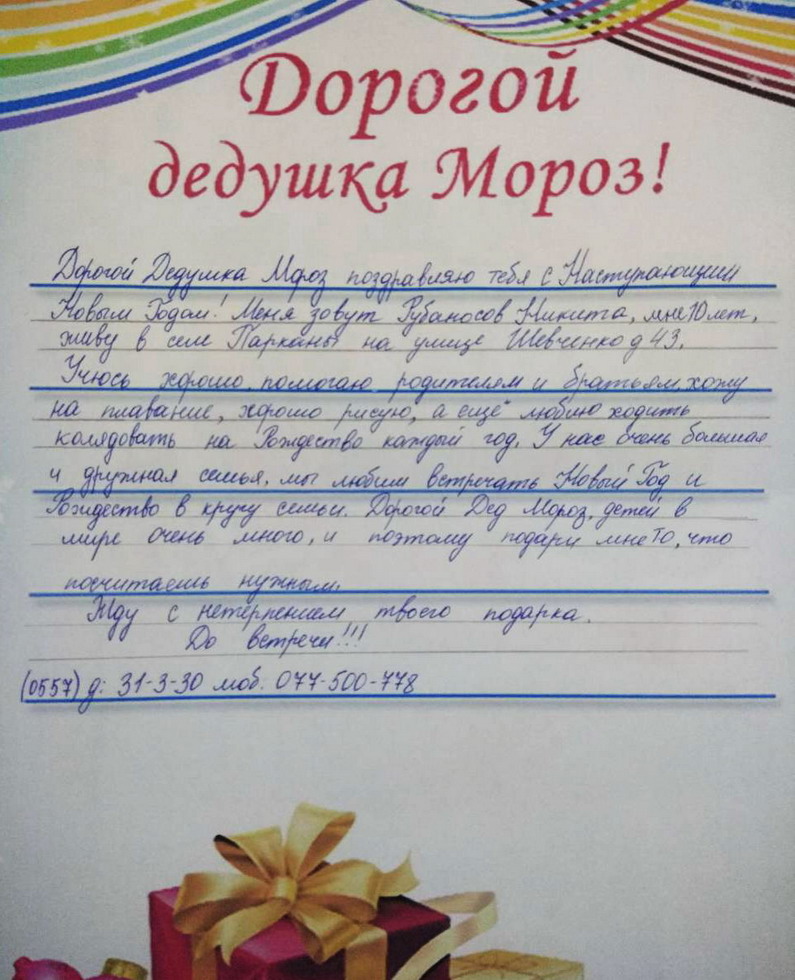 Дорогой
дедушка Мороз!
Дорогой Дедушка Мороз поздравляю тебя с Наступающим
Новым Годом! Меня зовут Рубаносов Никита, мне 10 лет,
живу в селе Парканы на улице Шевченко д 43.
Учусь хорошо, помогаю родителям и братьям, хожу
на плавание, хорошо рисую, а ещё люблю ходить
колядовать на Рождество каждый год. У нас очень большая
и дружная семья, мы любим встречать Новый Год и
Рождество в кругу семьи. Дорогой Дед Мороз, детей в
мире очень много, и поэтому подари мне то, что
посчитаешь нужным.
Жду с нетерпением твоего подарка.
До встречи!!!
(0557) д: 31-3-30 моб. 077-500-778